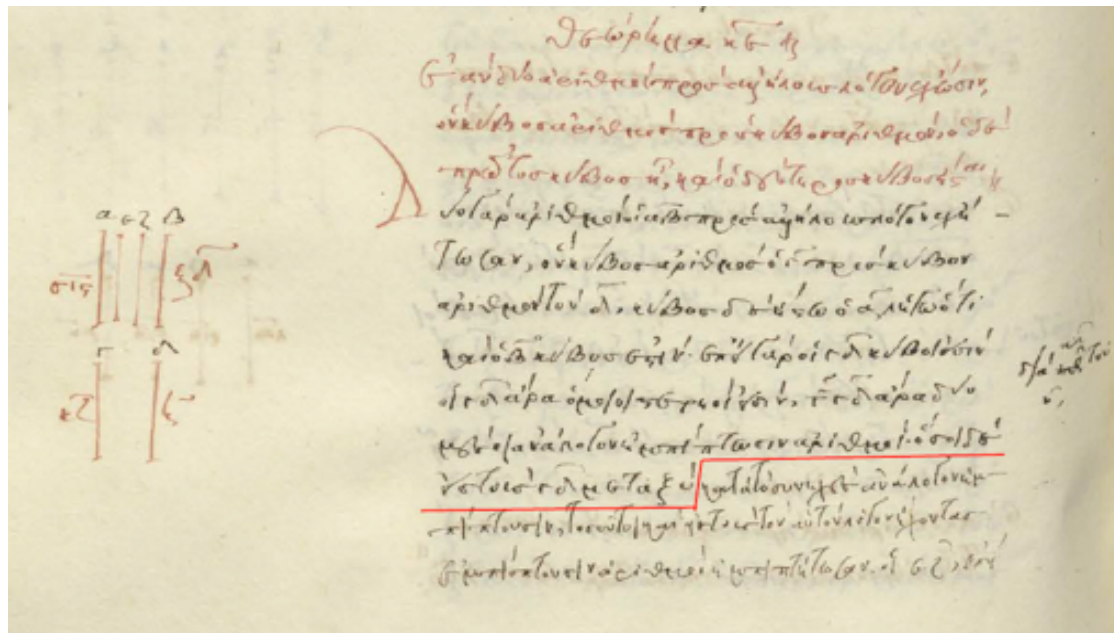 θεώρημα κε
ἐὰν δύο ἀριθμοὶ πρὸς ἀλλήλους λόγον ἔχωσιν,
ὃν κύβος ἀριθμὸς πρὸς κύβον ἀριθμόν, ὁ δὲ
πρῶτος κύβος ᾖ, καὶ ὁ δεύτερος κύβος ἔσται
Δύο γὰρ ἀριθμοὶ οἱ α β πρὸς ἀλλήλους λόγον ἐχέ-
τωσαν, ὃν κύβος ἀριθμὸς ὁ γ πρὸς κύβον
ἀριθμὸν τὸν δ, κύβος δὲ ἔστω ὁ α, λέγω ὅτι
καὶ ὁ β κύβος ἐστίν. ἐπεὶ γὰρ οἱ γ δ κύβοι εἰσίν
οἱ γ δ ἄρα ὅμοιοι στερεοί εἰσιν, τῶν γ δ ἄρα δύο
μέσοι ἀνάλογον ἐμπίπτωσιν ἀριθμοί. ὅσοι δὲ
εἰς τοὺς γ δ μεταξὺ κατὰ τὸ συνεχὲς ἀνάλογον ἐμ-
πίπτουσιν, τοσοῦτοι καὶ εἰς τοὺς τὸν αὐτὸν λόγον ἔχοντας
ἐμπίπτουσιν ἀριθμοί ἐμπιπτέτωσαν οἱ ε ζ,
α ε ζ β
σις
ξδ
γ δ
κζ
η